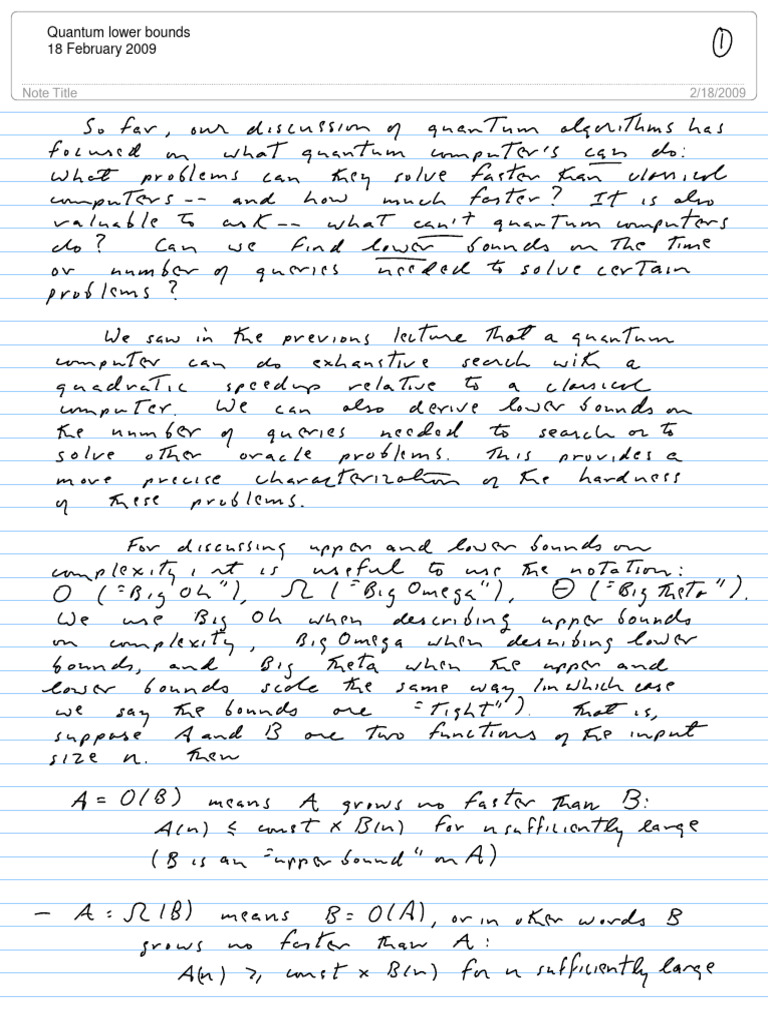 Quantum lower bounds
18 February 2009
1
Note Title
2/18/2009
So far, our discussion of quantum algorithms has
focused on what quantum computer's can do:
What problems can they solve faster than classical
computers -- and how much faster? It is also
valuable to ask -- what can't quantum computers
do? Can we find lower bounds on the time
or number of queries needed to solve certain
problems?
We saw in the previous lecture that a quantum
computer can do exhaustive search with a
quadratic speedup relative to a classical
computer. We can also derive lower bounds on
the number of queries needed to search or to
solve other oracle problems. This provides a
more precise characterization of the hardness
of these problems.
For discussing upper and lower bounds on
complexity, it is useful to use the notation:
O ("Big Oh"), Ω ("Big Omega"), Θ ("Big Theta").
We use Big Oh when describing upper bounds
on complexity, Big Omega when describing lower
bounds, and Big Theta when the upper and
lower bounds scale the same way (in which case
we say the bounds are "tight"). That is,
suppose A and B are two functions of the input
size n. Then
A = O(B) means A grows no faster than B:
A(n) ≤ const × B(n) for n sufficiently large
(B is an "upper bound" on A)
- A = Ω(B) means B = O(A), or in other words B
grows no faster than A:
A(n) ≥ const × B(n) for n sufficiently large